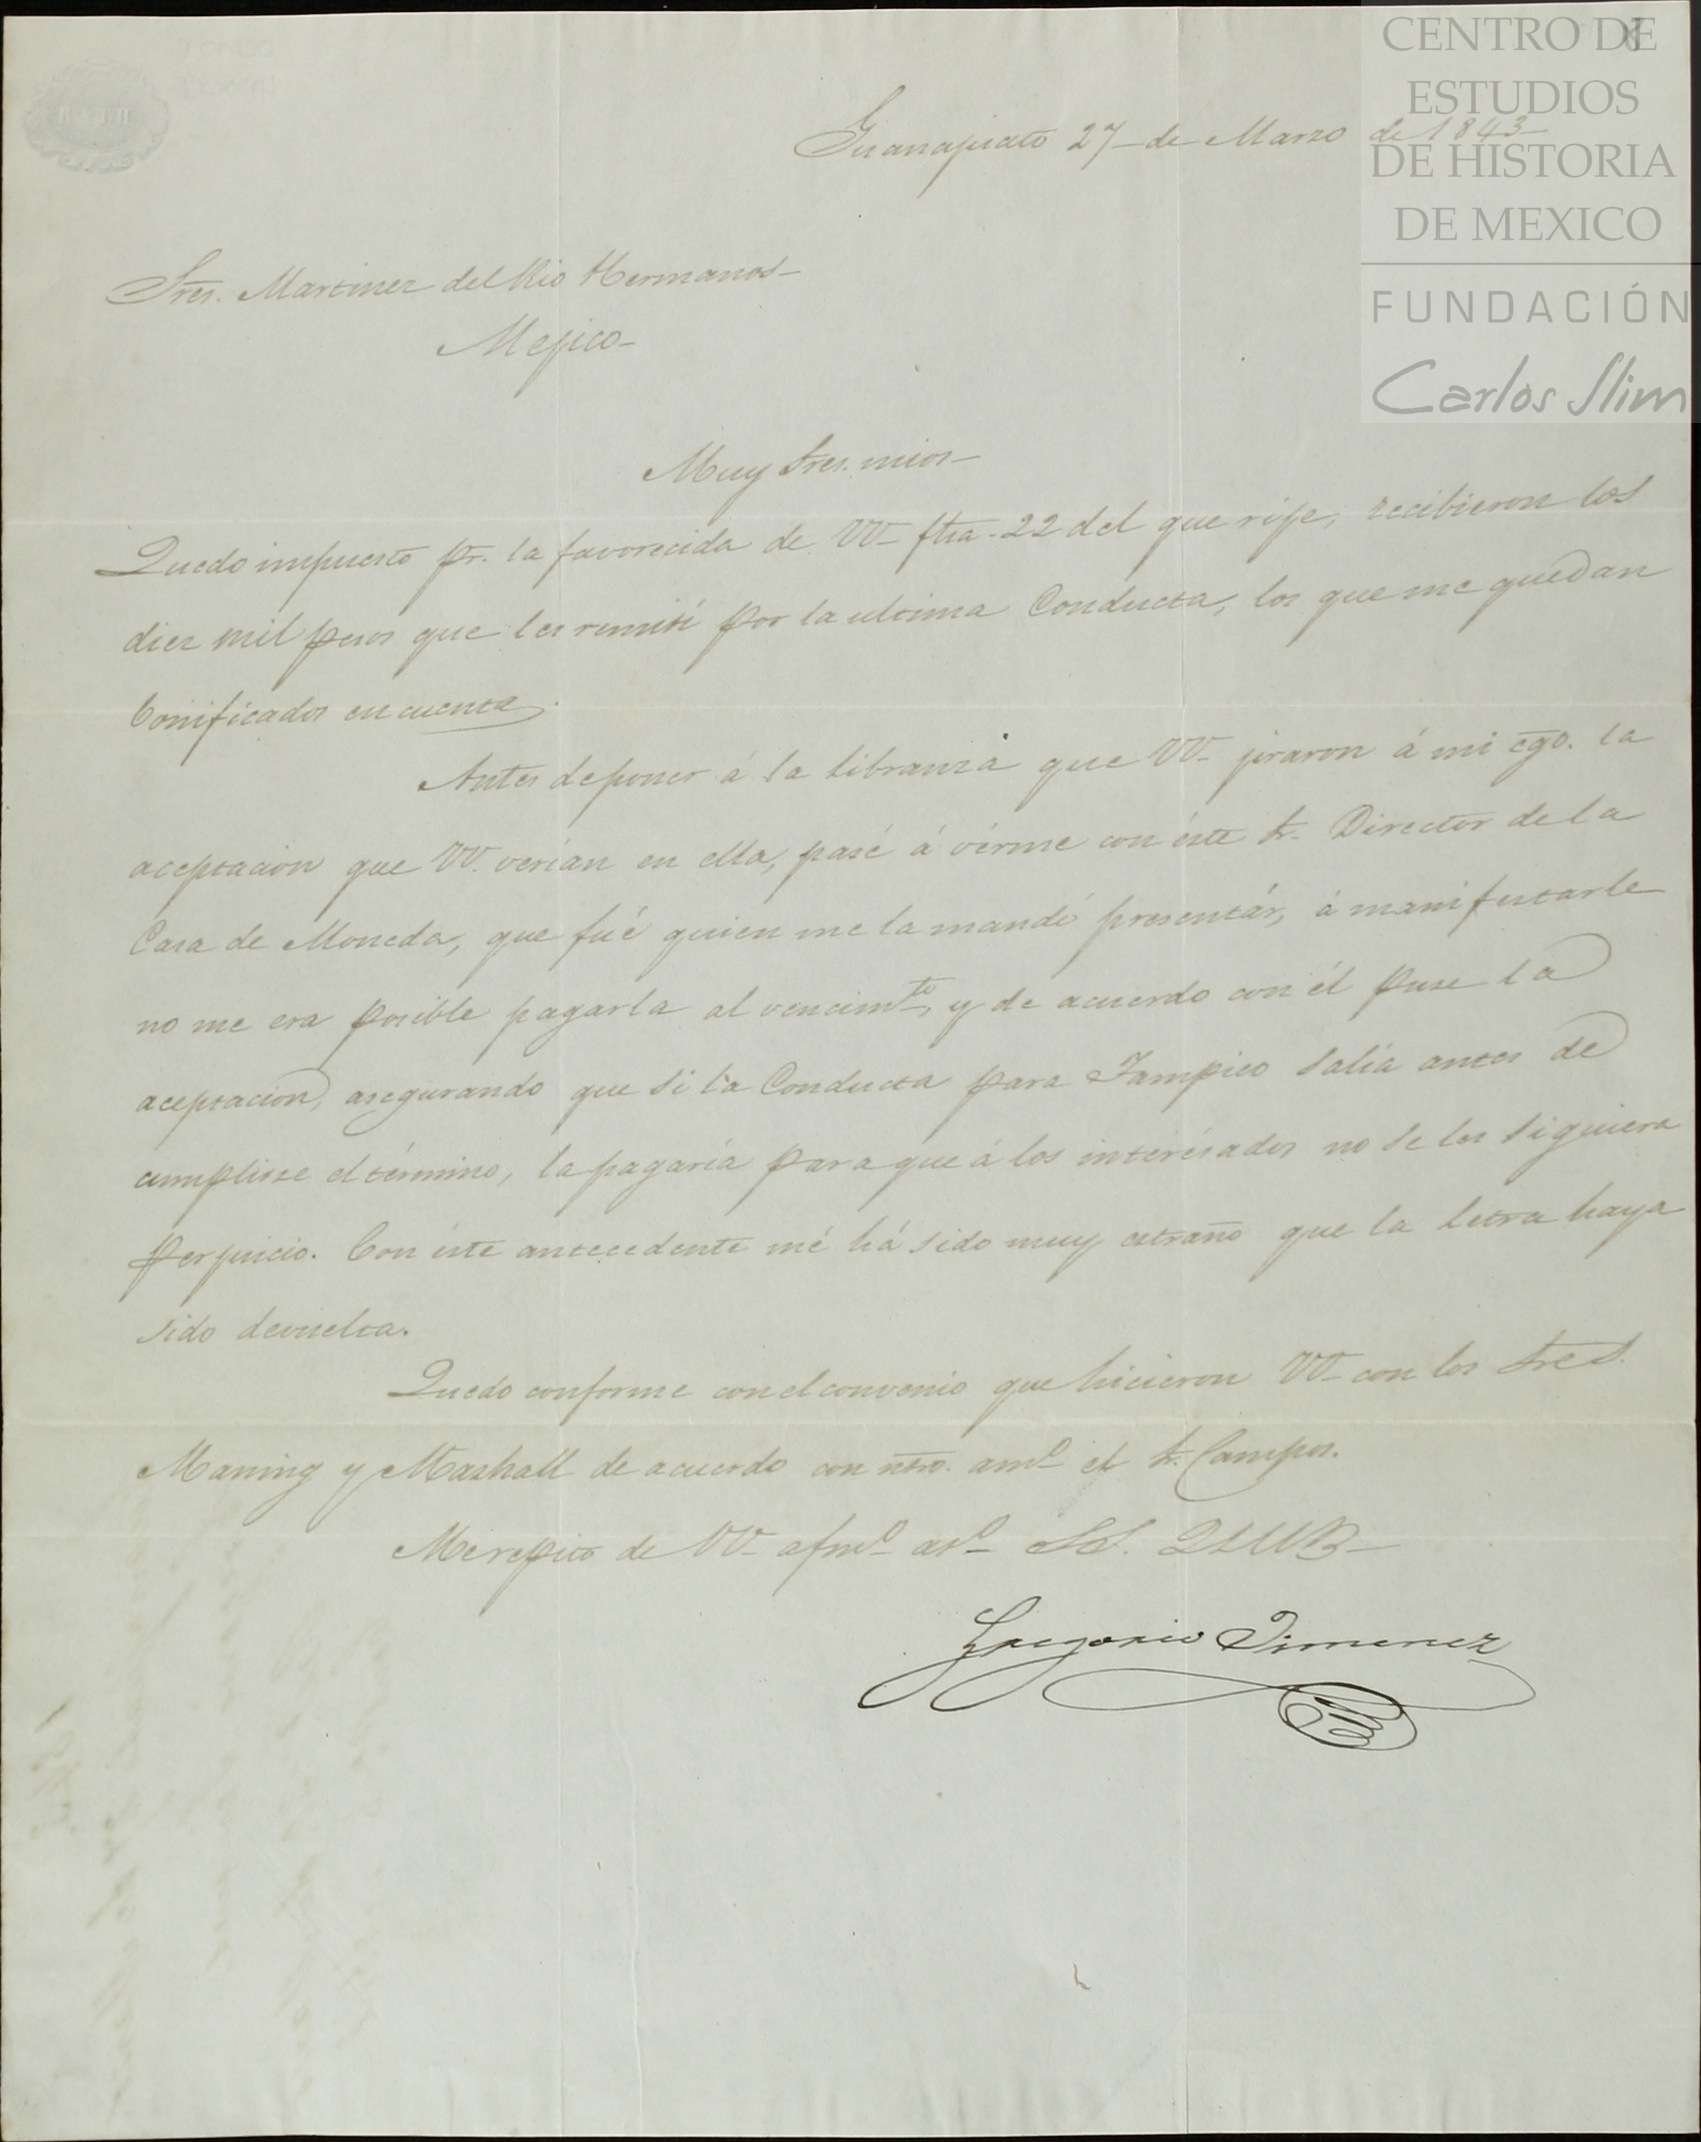 CENTRO DE
ESTUDIOS
DE HISTORIA
DE MEXICO
FUNDACIÓN
Carlos Slim
Guanajuato 27 de Marzo de 1843
Sres. Martinez del Rio Hermanos
Mejico
Muy Sres. mios
Quedo impuesto pr. la favorecida de VV fha. 22 del que rije, recibieron los
diez mil pesos que les remití por la ultima Conducta, los que me quedan
bonificados en cuenta.
Antes de poner á la libranza que VV jiraron á mi cgo. la
aceptacion que VV. verían en ella, pasé á vérme con éste Sr. Director de la
Casa de Moneda, que fué quien me la mandó presentár, á manifestarle
no me era posible pagarla al vencimto, y de acuerdo con él puse la
aceptacion, asegurando que si la Conducta para Tampico salia antes de
cumplirse el término, la pagaría para que á los interésados no se les siguiera
perjuicio. Con éste antecedente mé há sido muy estraño que la letra haya
sido devuelta.
Quedo conforme con el convenio que hicieron VV con los Sres.
Maning y Mashall de acuerdo con ntro. amo el Sr. Campos.
Me repito de VV afmo ato SS. QSMB
Gregorio Jimenez